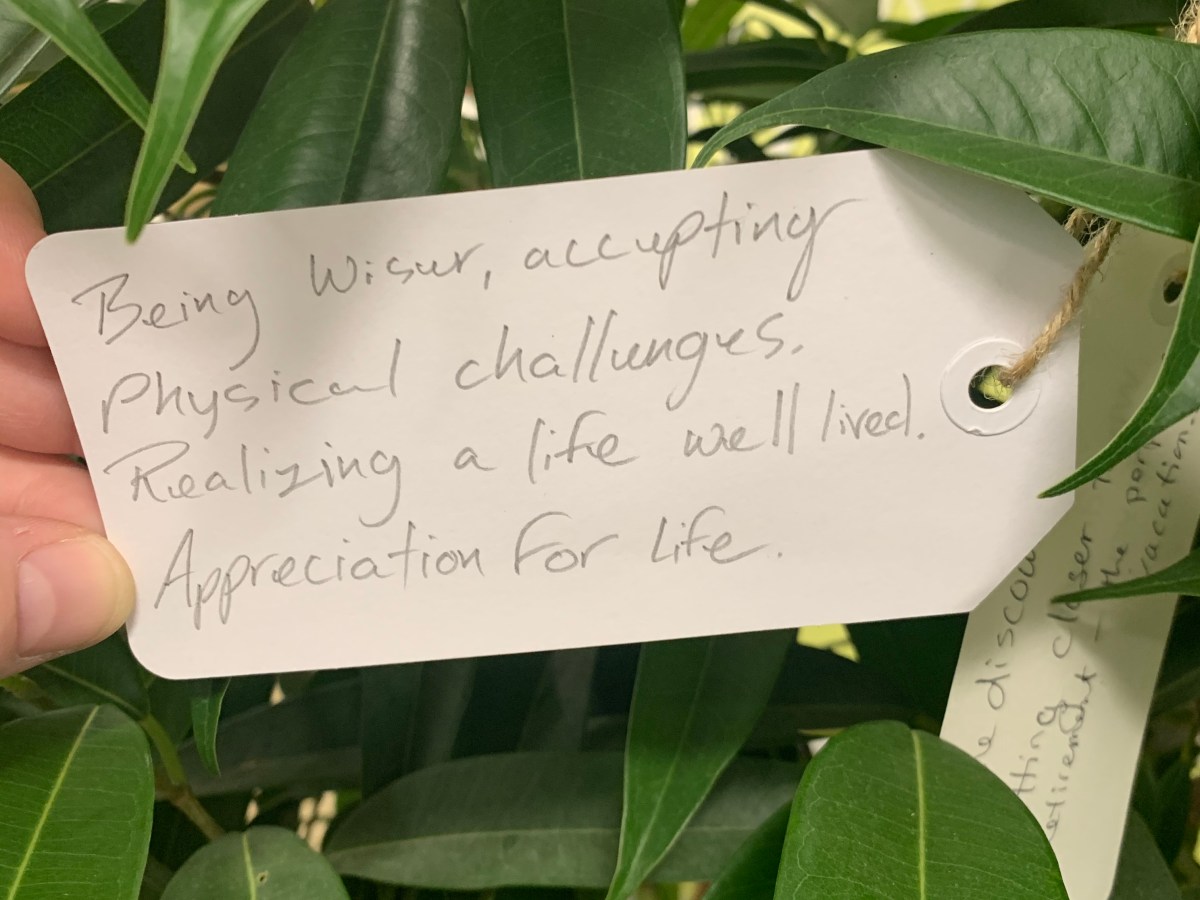 Being Wiser, accepting
physical challenges.
Realizing a life well lived.
Appreciation For Life.
discou
closer
etirement - the
vacation.